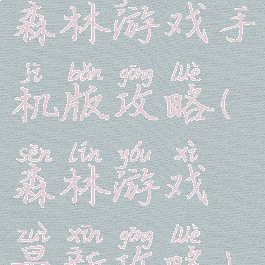 森林游戏手
jī bǎn gōng lüè
机版攻略(
sēn lín yóu xì
森林游戏
zuì xīn gōng lüè
最新攻略)